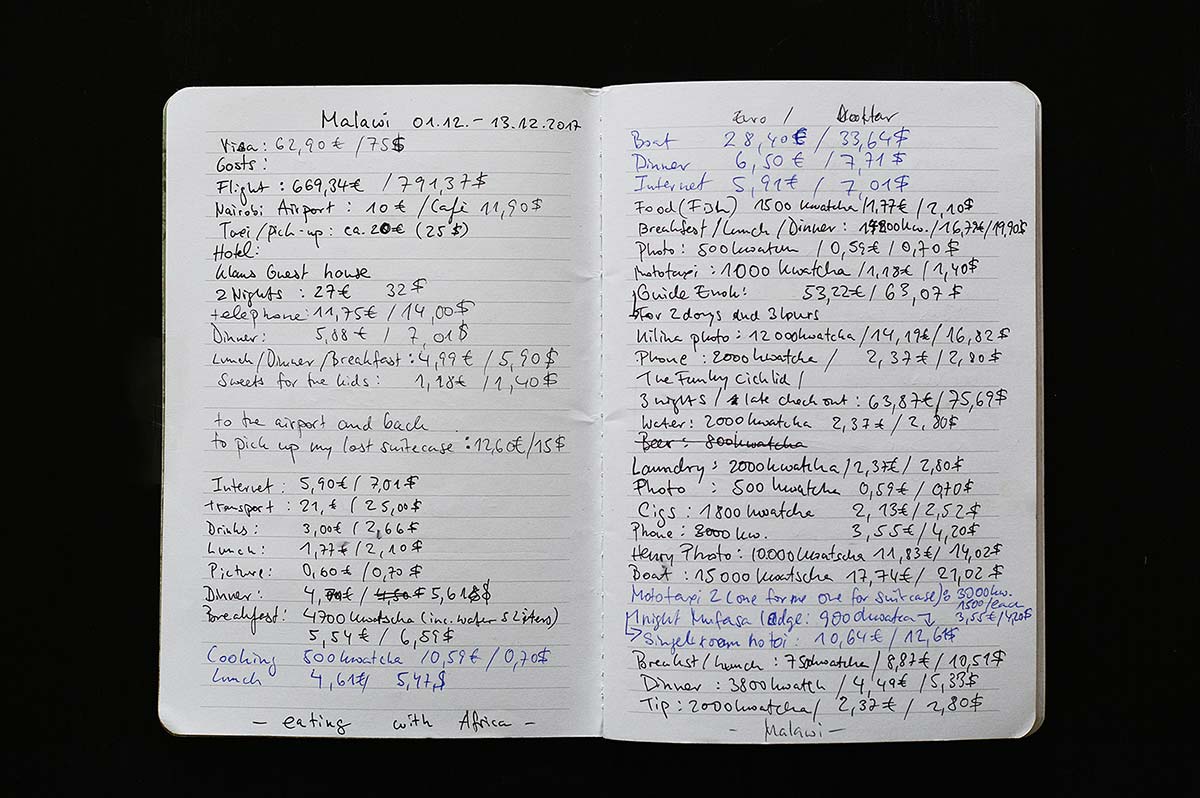 Malawi 01.12. – 13.12.2017
Visa: 62,90€ / 75$
Costs:
Flight : 669,34€ / 791,37$
Nairobi Airport : 10€ / Cafè 11,90$
Taxi/pick-up : ca. 20€ (25$)
Hotel:
Klaus Guest house
2 Nights : 27€ 32$
telephone: 11,75€ / 14,00$
Dinner: 5,88€ / 7,01$
Lunch/Dinner/Breakfast: 4,99€ / 5,90$
Sweets for the kids: 1,18€ / 1,40$
to the airport and back
to pick up my lost suitecase : 12,60€/15$
Internet: 5,90€ / 7,01$
transport : 21,€ / 25,00$
Drinks: 3,00€ / 2,66$
Lunch: 1,77€ / 2,10$
Picture: 0,60€ / 0,70$
Dinner: 4, / 5,61$
Breakfest: 4700 kwatscha (inc. water 5 liters)
5,54€ / 6,59$
Cooking 500 kwatcha /0,59€ / 0,70$
Lunch 4,61€/ 5,47$
– eating with Africa –
Euro /
Boat 28,40€ / 33,64$
Dinner 6,50€ / 7,71$
Internet 5,91€ / 7,01$
Food (Fish) 1500 kwatcha /1,77€ / 2,10$
Breakfest/Lunch/Dinner: kw./16,79€/19,90$
Photo: 500 kwatcha / 0,59€ / 0,70$
Mototaxi : 1000 kwatcha / 1,18€ / 1,40$
Guide Enok: 53,22€ / 63,07$
For 2 days and 3 hours
photo: 12000kwatcha / 14,19€ / 16,82$
Phone : 2000 kwatcha / 2,37€ / 2,80$
The Funky Cichlid /
3 nights / late check out : 63,87€ / 75,69$
Water: 2000 kwatcha 2,37€ / 2,80$
Beer : 800 kwatcha
Laundry : 2000 kwatcha / 2,37€ / 2,80$
Photo : 500 kwatcha 0,59€ / 0,70$
Cigs : 1800 kwatcha 2,13€ / 2,52$
Phone : 3000 kw. 3,55€ / 4,20$
Henry Photo : 10.000 kwatscha 11,83€ / 14,02$
Boat : 15000 kwatscha 17,74€ / 21,02$
Mototaxi 2 (one for me one for suitcase): 3000kw.
1500/each
1 night Mufasa Lodge: 9000 kwatcha 3,55€ / 4,20$
: 10,64€ / 12,61$
Lunch : 7500 kwatcha / 8,87€ / 10,51$
Dinner : 3800 kwatch / 4,49€ / 5,33$
Tip : 2000 kwatcha / 2,37€ / 2,80$
– Malawi –